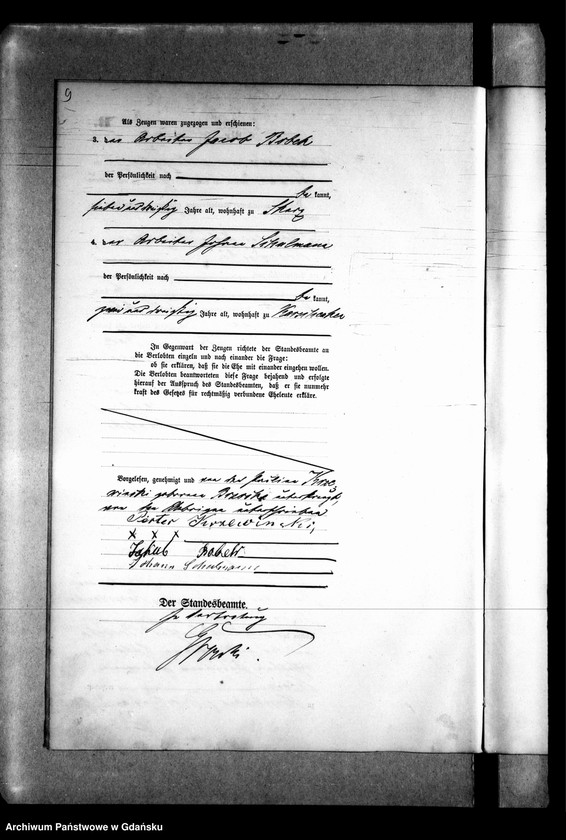 9
Als Zeugen waren zugezogen und erschienen:
3. der Arbeiter Jacob Bobek
der Persönlichkeit nach
be kannt,
sieben und dreißig Jahre alt, wohnhaft zu Skarz
4. der Arbeiter Johann Schulmann
der Persönlichkeit nach
be kannt,
zwei und dreißig Jahre alt, wohnhaft zu
In Gegenwart der Zeugen richtete der Standesbeamte an
die Verlobten einzeln und nach einander die Frage:
ob sie erklären, daß sie die Ehe mit einander eingehen wollen.
Die Verlobten beantworteten diese Frage bejahend und erfolgte
hierauf der Ausspruch des Standesbeamten, daß er sie nunmehr
kraft des Gesetzes für rechtmäßig verbundene Eheleute erkläre.
Vorgelesen, genehmigt und von der
geborenen unterkreuzt,
von den Übrigen unterschrieben
Pioter
x x x
Jakub Bobek
Johann Schulmann
Der Standesbeamte.
In Vertretung
Archiwum Państwowe w Gdańsku